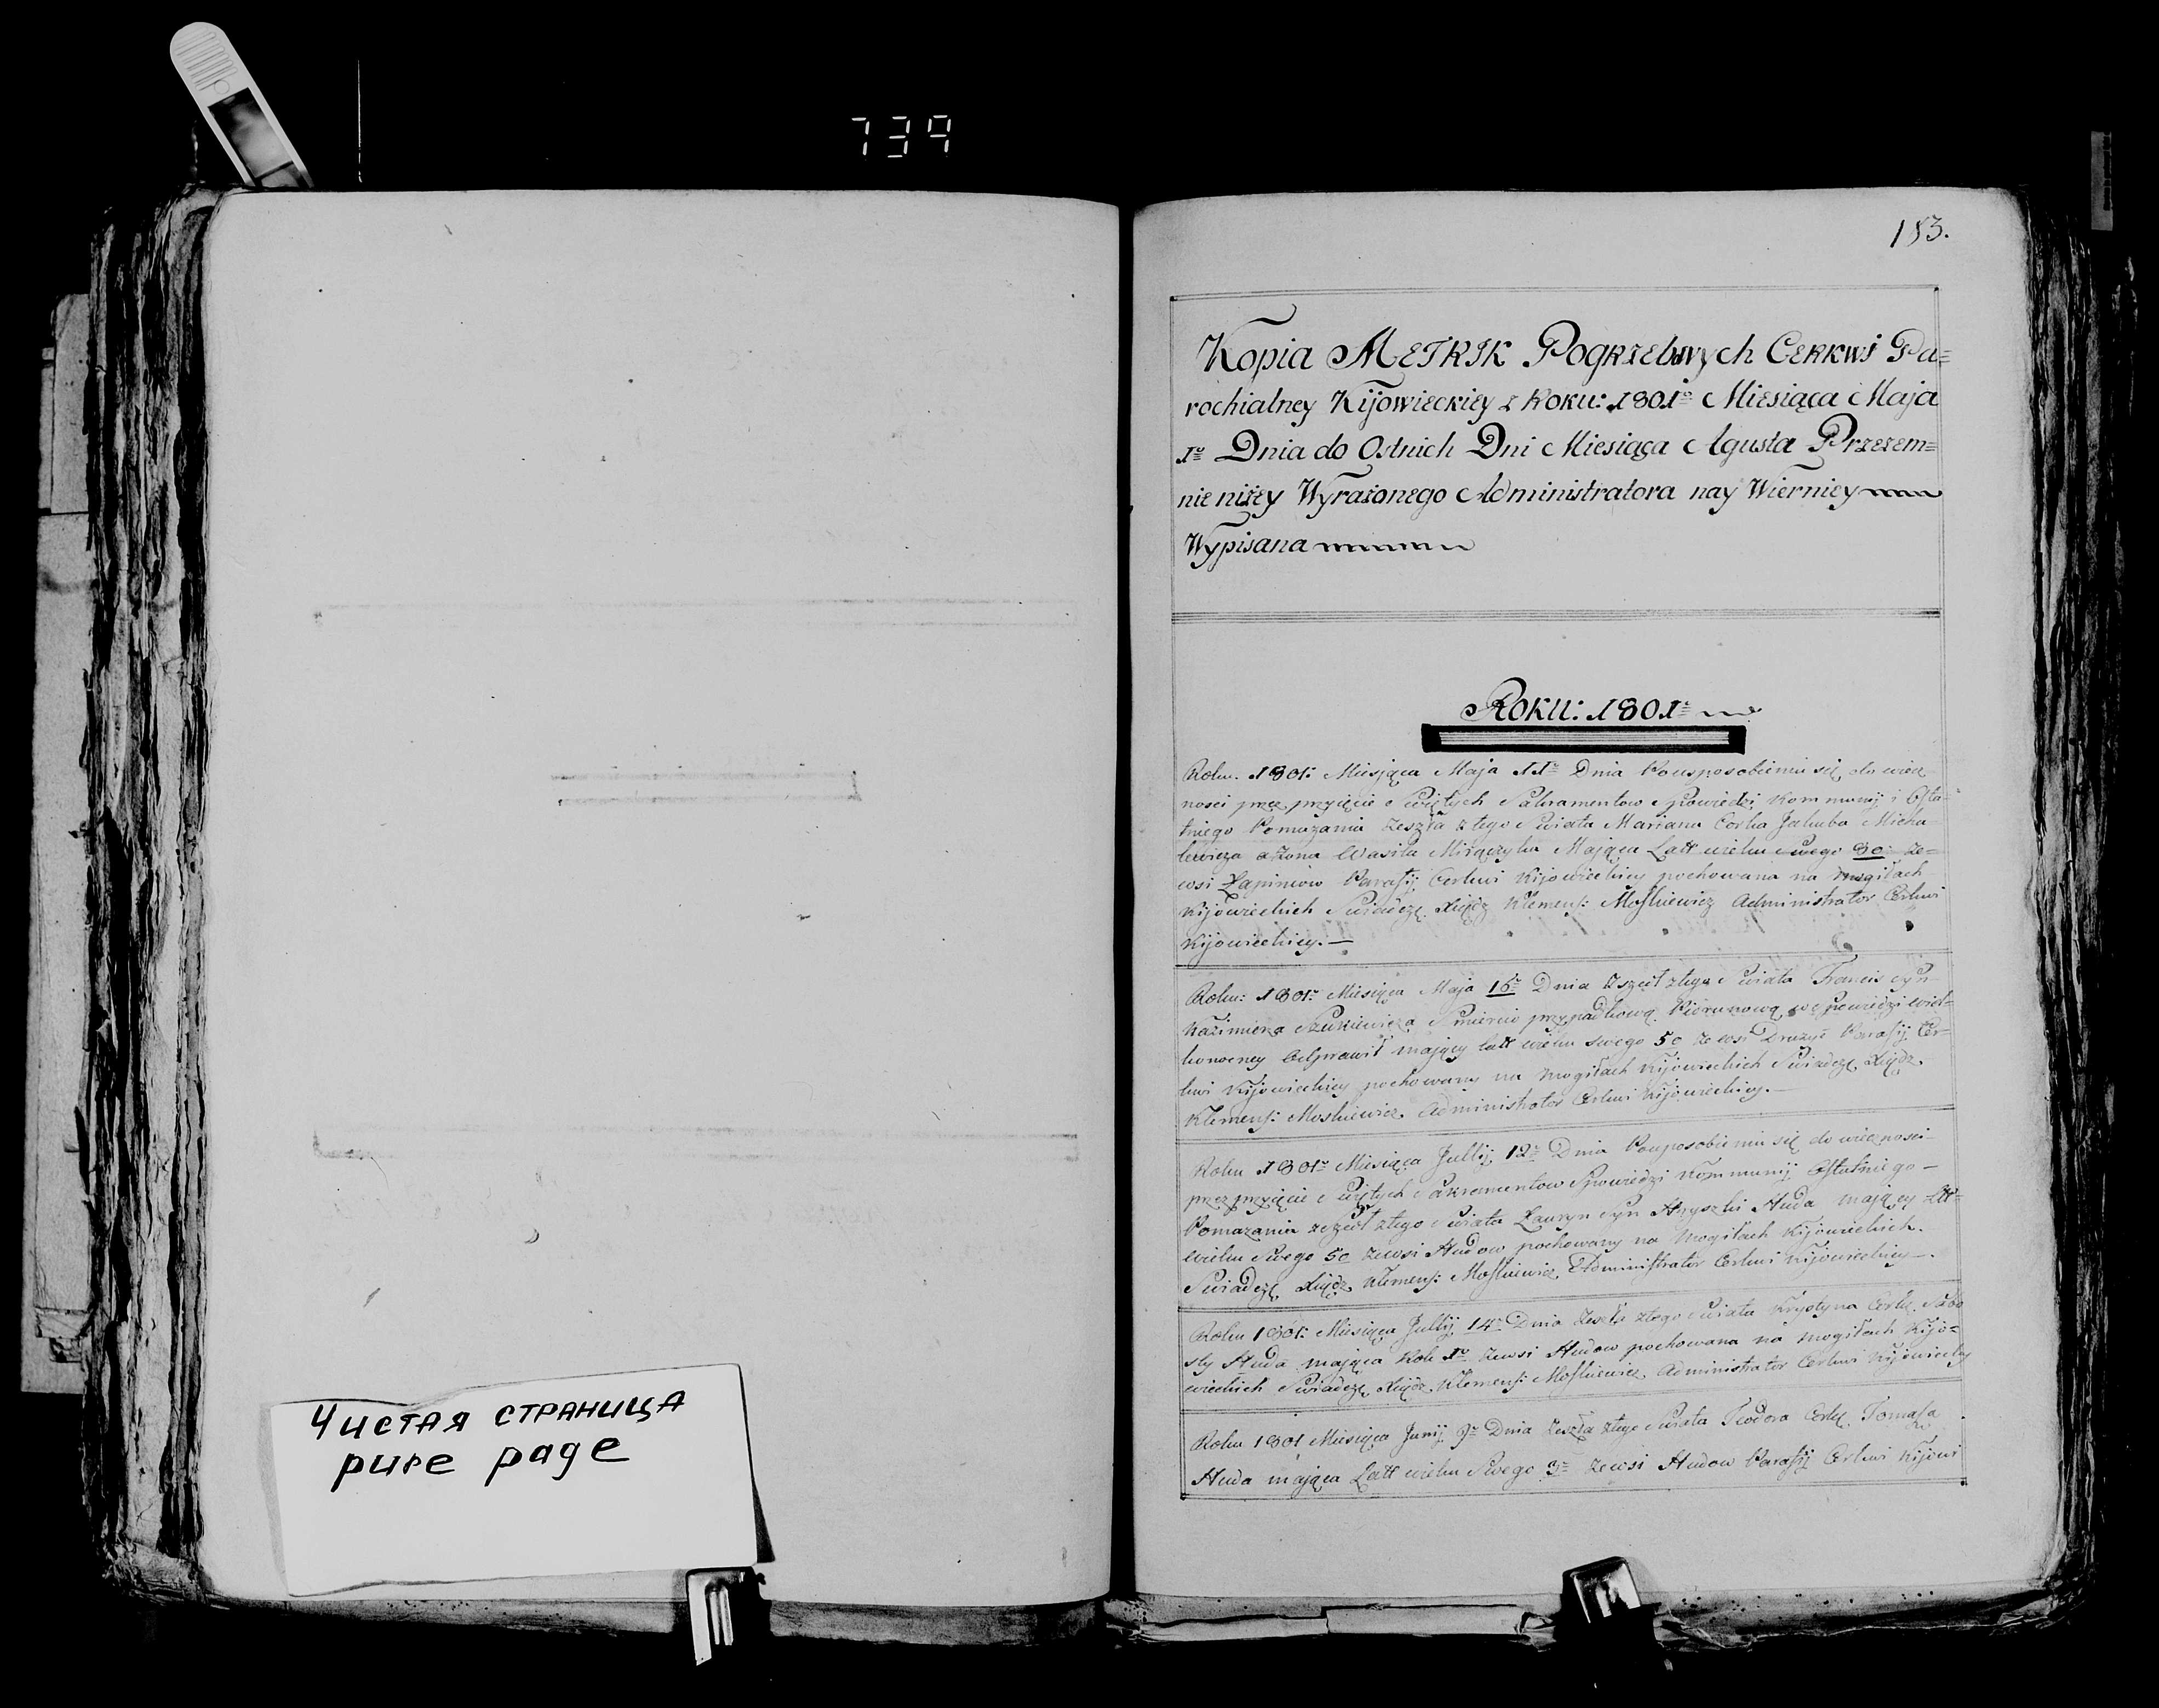 739
Чистая страница
pure page
183.
Kopia Metrik Pogrzebwych Cerkwi Pa=
rochialney Kijowieckiey z Roku: 1801º Miesiąca Maja
1º Dnia do Ostnich Dni Miesiąca Agusta Przezem=
nie niżey Wyrażonego Administratora nay Wierniey
Wypisana
Roku: 1801º
Roku. 1801: Miesiąca Maja 11º Dnia Pousposobieniu się do wiecz
ności przez przyięcie Swiętych Sakramentow Spowiedzi Kommunij i Osta=
tniego Pomazania Zeszła z tego Swiata Marianna Corka Jakuba Micha
lewicza a żona Wasila Mającą Latt wieku swego 80: ze=
wsi Łapiniow Parafij Cerkwi Kijowieckiey pochowana na mogiłach
Kijowieckich Swiadczę Xiądz Klemens: Moszkiewicz Administrator Cerkwi
Kijowieckiey.—
Roku: 1801º Miesiąca Maja 16º Dnia Zszedł z tego Swiata Francis syn
Kazimierza Szukiewicza Smiercio przypadkową Piorunową Spowiedź wiel=
konocney Odprawił mający latt wieku swego 50 ze wsi Parafij Cer=
kwi Kijowieckiey pochowany na mogiłach Kijowieckich Swiadczę Xiądz
Klemens: Moszkiewicz Administrator Cerkwi Kijowieckiey.—
Roku 1801º Miesiąca Jullij 12º Dnia Pousposobieniu się do wieczności
przez przyięcie Swiętych Sakramentow Spowiedzi Kommunij Ostatniego—
Pomazania zeszedł z tego Swiata Lauryn syn Huda mający Latt=
wieku Swego 50 ze wsi Hudow pochowany na Mogiłach Kijowieckich.
Swiadczę Xiądz Klemens: Moszkiewicz Administrator Cerkwi Kijowieckiey—.
Roku 1801: Miesiąca Jullij 14º Dnia Zeszła z tego Swiata Krystyna Corka
Huda mająca Rok 1º ze wsi Hudow pochowana na mogiłach Kijo=
wieckich Swiadczę Xiądz Klemens: Moszkiewicz Administrator Cerkwi Kijowieckiey
Roku 1801 Miesiąca Junij 9º Dnia Zeszła z tego Swiata Teodora Corka Tomasza
Huda mająca Latt wieku Swego 3º ze wsi Hudow Parafij Cerkwi Kijowi